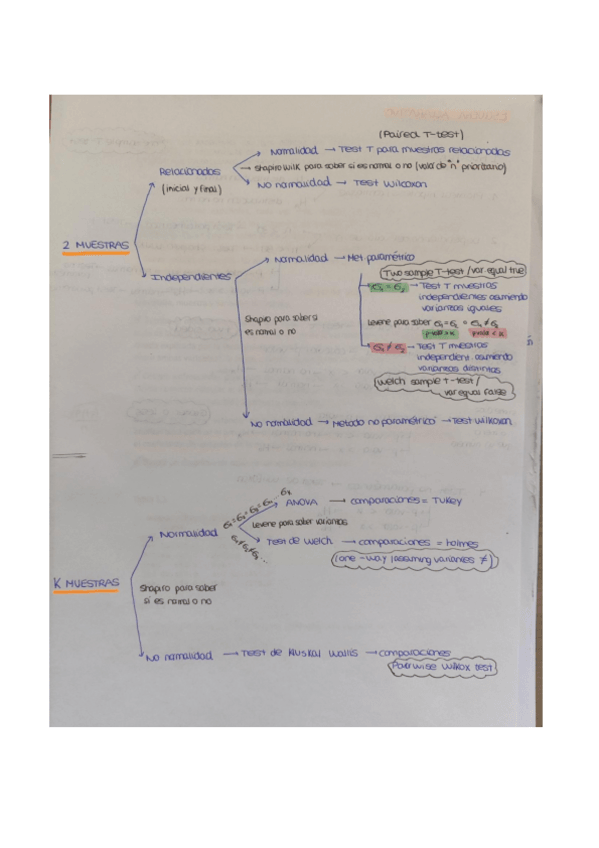 (Paired T-test)
Normalidad → Test T para muestras relacionadas
Relacionados
→ Shapiro Wilk para saber si es normal o no (valor de "n" prioritario)
(inicial y final)
No normalidad → Test Wilcoxon
2 MUESTRAS
Normalidad → Met paramétrico
Two sample T-test / var equal true
Independientes
σ₁ = σ₂ → Test T muestras
independientes asumiendo
varianzas iguales
Shapiro para saber si
es normal o no
Levene para saber σ₁ = σ₂ o σ₁ ≠ σ₂
p-valor > α p-valor < α
σ₁ ≠ σ₂ → Test T muestras
independient. asumiendo
varianzas distintas
Welch sample t-test /
var equal False
No normalidad → Metodo no paramétrico → Test Wilcoxon
σ₁ = σ₂ = σ₃ = σ₄ ... σₖ
ANOVA → comparaciones = TUKEY
Levene para saber varianzas
Normalidad
Test de Welch → comparaciones = Holmes
σ₁ ≠ σ₂ ≠ σ₃ ...
(one-way (assuming variances ≠)
K MUESTRAS
Shapiro para saber
si es normal o no
No normalidad → Test de Kruskal Wallis → comparaciones
Pairwise Wilcox test